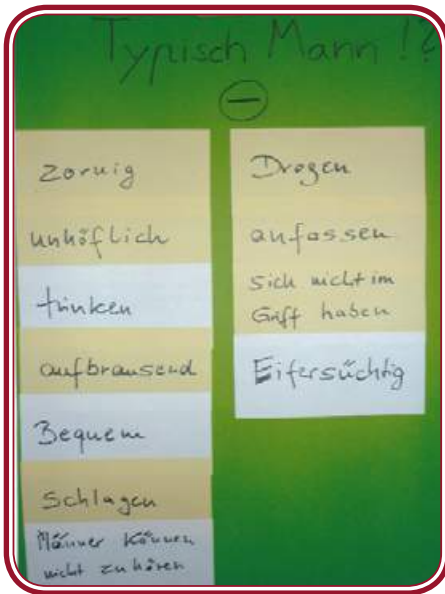 Typisch Mann !?
−
zornig
unhöflich
trinken
aufbrausend
Bequem
Schlagen
Männer können
nicht zuhören
Drogen
anfassen
sich nicht im
Griff haben
Eifersüchtig